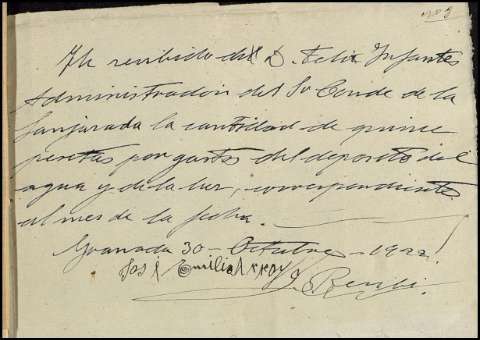 nº 3
He recibido del D. Felix Infantes
Administrador del Sr Conde de la
Janjarada la cantidad de quince
pesetas por gastos del deposito del
agua y de la luz, correspondiente
al mes de la fecha.
Granada 30 - Octubre - 1922
José Emilia Arroy
Recibí.